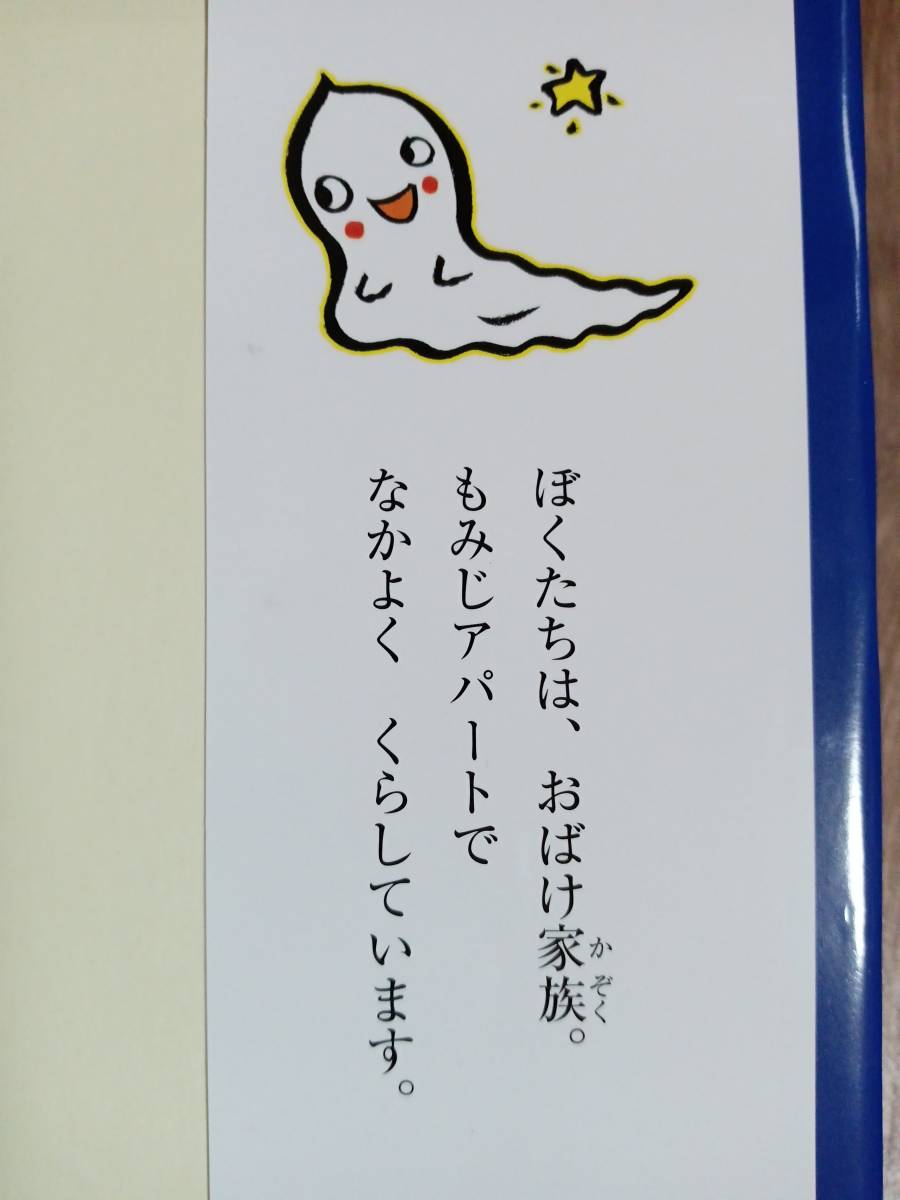 ぼくたちは、おばけ家族。
かぞく
もみじアパートで
なかよく　くらしています。